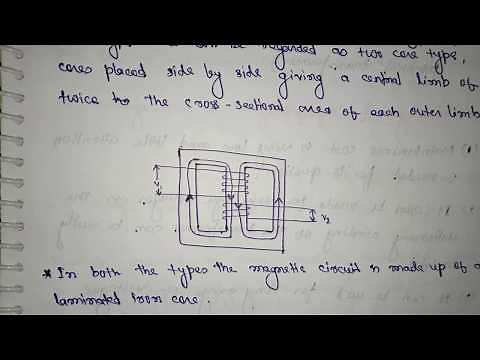 can be regarded as two core type,
cores placed side by side giving a central limb of
twice to the cross-sectional area of each outer limb
V1
V2
* In both the types the magnetic circuit is made up of a
laminated iron core.